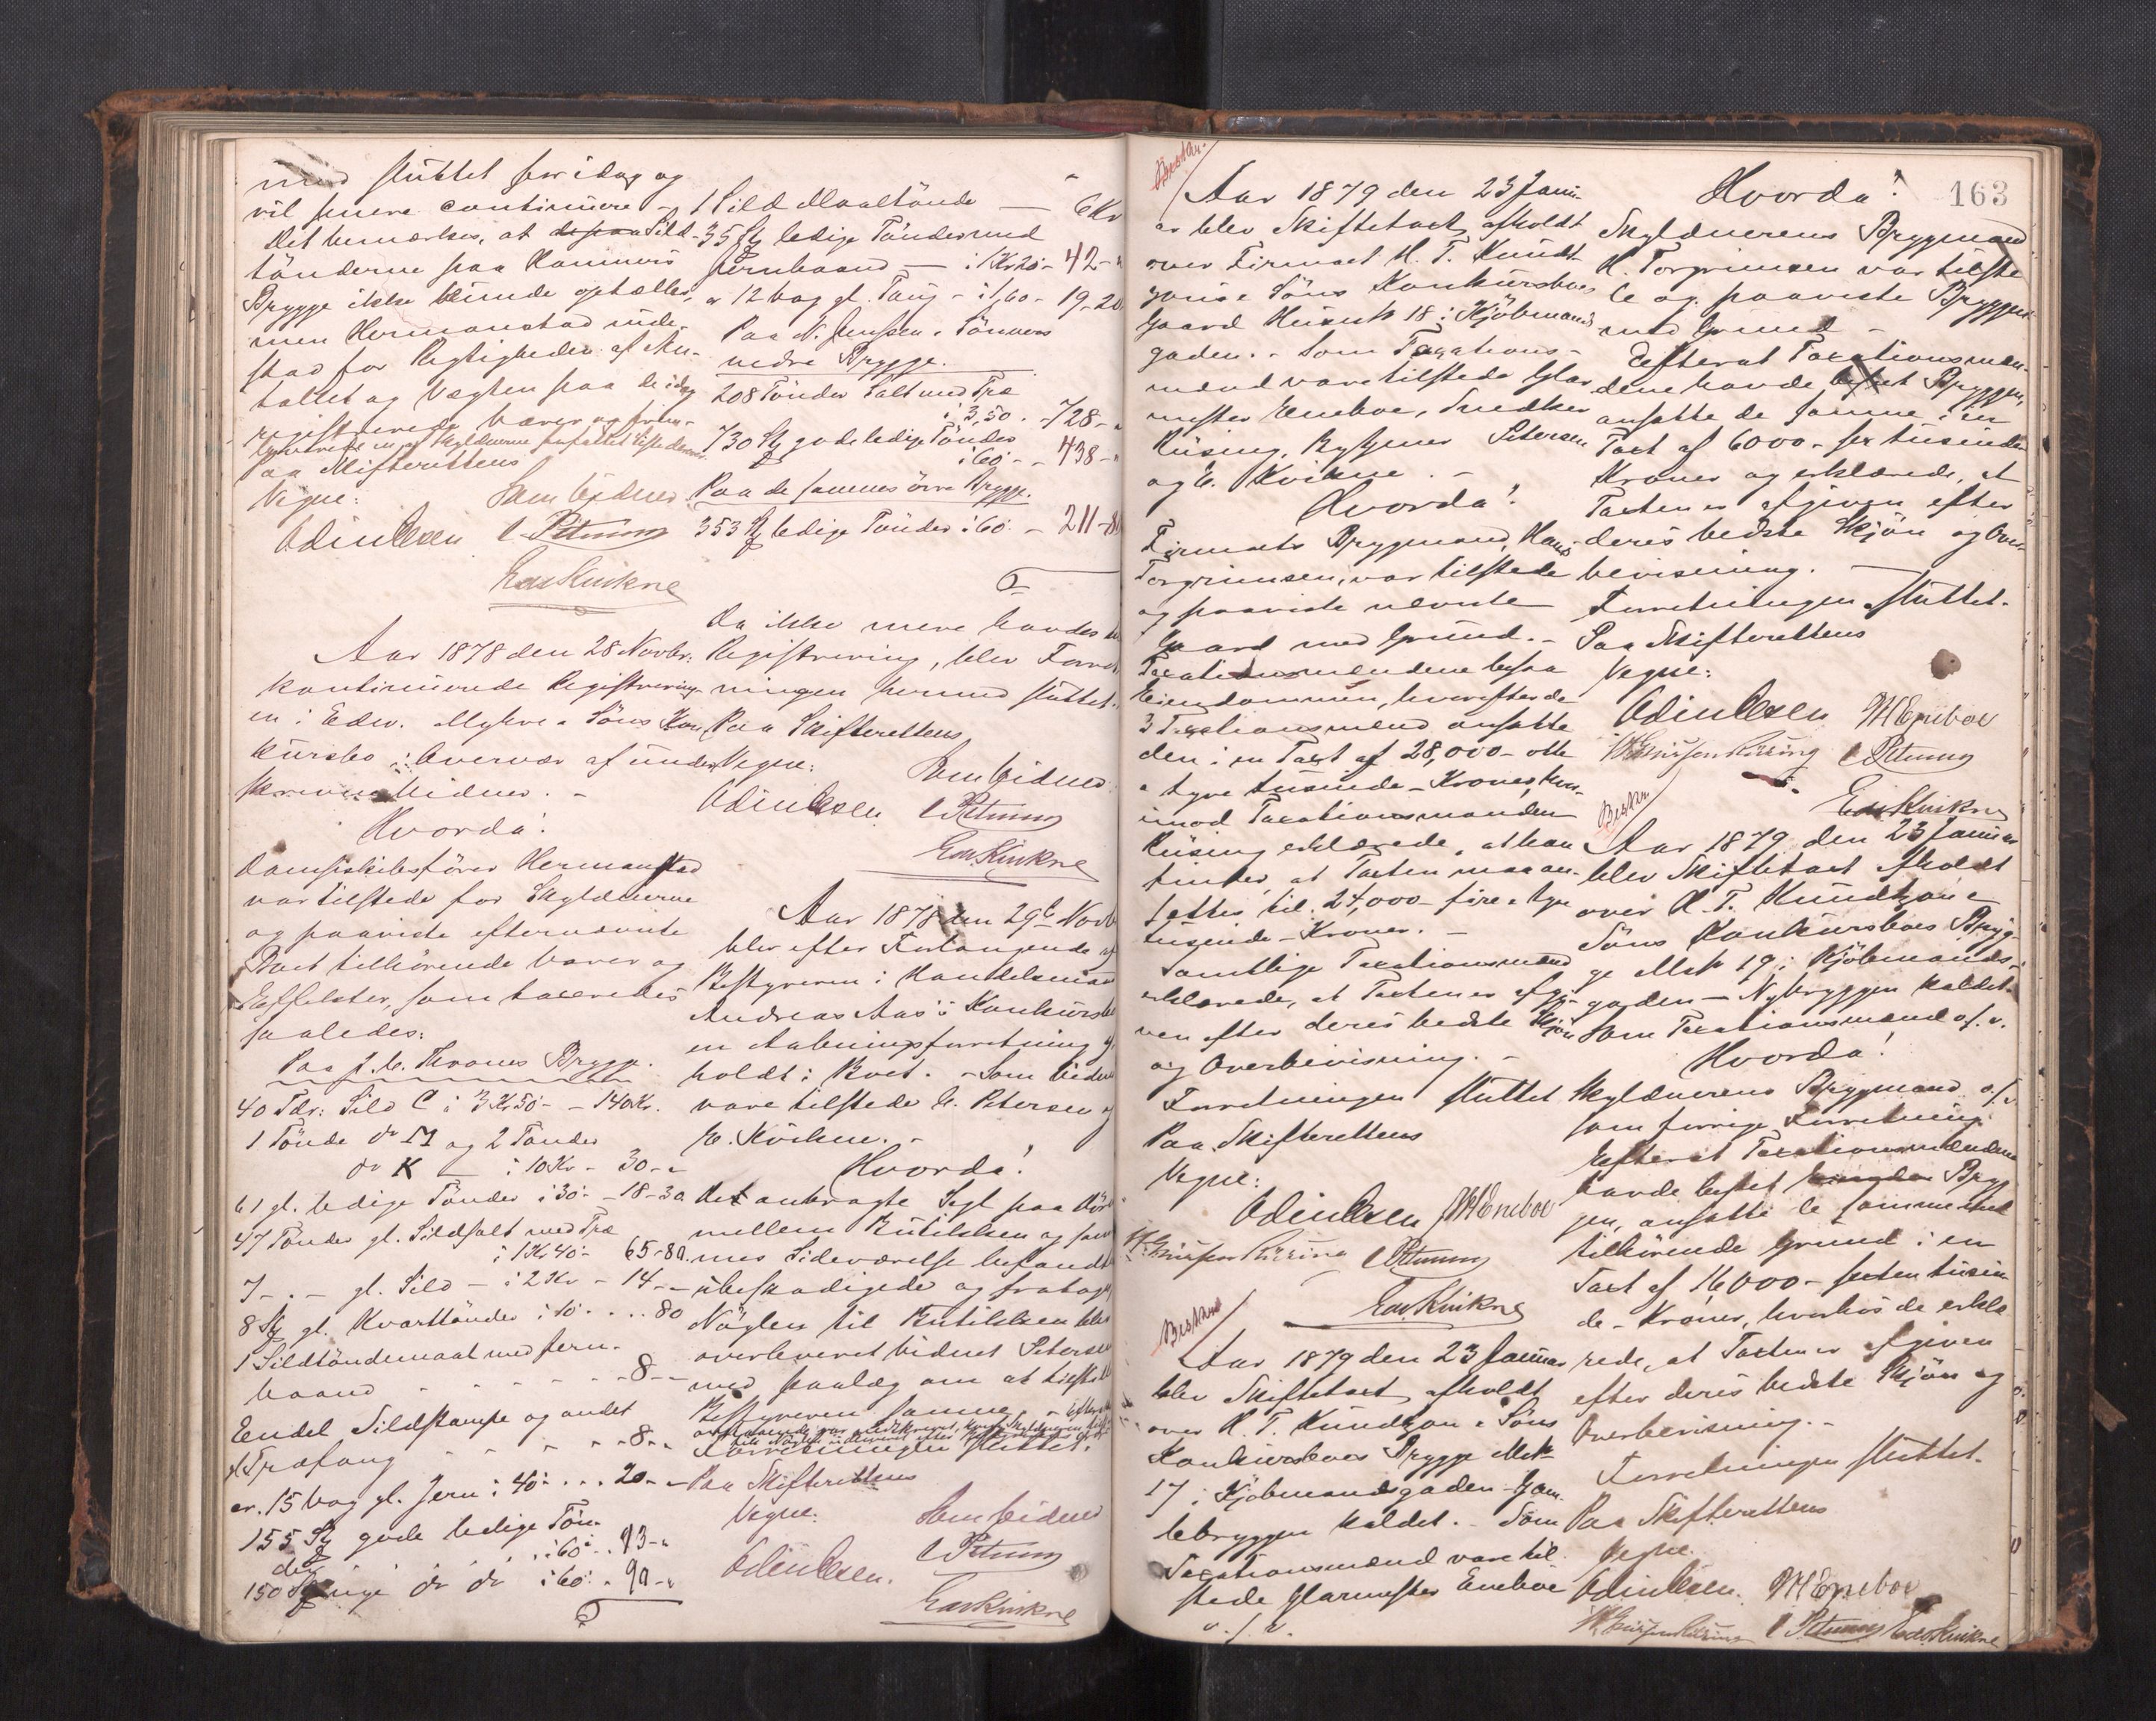 med sluttet for idag og
vil senere continuere –
Det bemærkes, at Sild-
tønderne paa Hammers
Brygge ikke kunde optælles,
men Hermanstad inde-
stod for Rigtigheden af An-
tallet og Vægten paa de idag
registrerede Varer og
Paa Skifterettens
Vegne: Som Vidner
Odin Olsen C. Petersen
Edv Kvikne
Aar 1878 den 28 Novbr:
kontinuerede Registrering-
en i Edv. Myhre & Søns Kon-
kursbo i Overvær af under-
skrevne Vidner. –
Hvorda!
Dampskibsfører Hermanstad
var tilstede for Skyldnerne
og paaviste efternævnte
Boet tilhørende Varer og
Effekter, som taxeredes
saaledes:
Paa J. C. Thranes Brygge.
40 Tdr: Sild C à 3 Kr 50 – – 140 Kr.
1 Tønde do M og 2 Tønder
do K – à 10 Kr – 30 – "
61 gl. ledige Tønder à 30 – – 18 – 30
47 Tønder gl. Sildsalt med Træ
à 1 Kr 40 – 65 – 80.
7 – . – gl. Sild – à 2 Kr – 14 – –
8 St gl. Kvarttønder à 10 . . . 80
1 Sildtøndemaal med Jern-
baand - - - - - - 8 – –
Endel Sildstampe og andet
gl Træfang - - - - - 8 – "
cr. 15 Vog gl. Jern à 40 . . . 20 – "
155 St gode ledige Tøn-
der à 60 . . 93 – "
150 St do do à 60 . . 90 – "
1 Sild Maaltønde — 6 Kr
35 St ledige Tønder med
Jernbaand — à 1 Kr 20 – 42 – "
cr 12 Vog gl. Taug – à 1,60 – 19 – 20
Paa N. Jenssen & Sønners
nedre Brygge.
208 Tønder Salt med Træ
à 3,50 . – 728 – "
730 St gode ledige Tønder
à 60 – – 438 – "
Paa de sammes øvre Brygge.
353 St ledige Tønder à 60 – 211 – 80
Da ikke mere havdes til
Registrering, blev Forret-
ningen hermed sluttet.
Paa Skifterettens
Vegne: Som Vidner
Odin Olsen C Petersen
Edv. Kvikne
Aar 1878 den 29de Novbr
blev efter Forlangende af
Bestyreren i Handelsmand
Andreas Aas's Konkursbo
en Aabningsforretning af-
holdt i Boet. – Som Vidner
vare tilstede C. Petersen og
E. Kvikne. –
Hvorda!
Det anbragte Segl paa Døren
mellem Butikken og
mes Sideværelse befandtes
ubeskadigede og fratoges
Nøglen til Butikken blev
overleveret Vidnet Petersen
med Paalæg om at tilstille
Bestyreren samme. –
Forretningen sluttet.
Paa Skifterettens
Vegne: Som Vidner
Odin Olsen. C Petersen
Edv Kvikne
163
Beskr.
Aar 1879 den 23 Janu-
ar blev Skiftetaxt afholdt
over Firmaet H. T. Knudt-
zons & Søns Konkursboes
Gaard Huus No 18 i Kjøbmands-
gaden. – Som Taxations-
mænd vare tilstede Glar-
mester Eneboe, Snedker
Rüsing, Petersen
og E. Kvikne. –
Hvorda!
Firmaets Bryggmand, Hans
Torgrimsen, var tilstede
og paaviste nævnte
Gaard med Grund. –
Taxationsmændene besaa
Eiendommen, hvorefter de
3 Taxationsmænd ansatte
den i en Taxt af 28,000 – otte
& tyve tusinde – Kroner, her-
imod Taxationsmanden
Rüsing erklærede, at han
, at Taxten maa an-
sættes til 24,000 – fire & tyve
tusinde – Kroner. –
Samtlige Taxationsmænd
erklærede, at Taxten er afgi-
ven efter deres bedste Skjøn
og Overbevisning. –
Forretningen sluttet
Paa Skifterettens
Vegne:
Odin Olsen M Eneboe
Rüsing C Petersen
Edv. Kvikne
Beskr
Aar 1879 den 23 Januar
blev Skiftetaxt afholdt
over H. T. Knudtzon & Søns
Konkursboes Brygge Mk
17 i Kjøbmandsgaden – Gam-
lebryggen kaldet. – Som
Taxationsmænd vare til-
stede Glarmester Eneboe
o. s. v.
Hvorda!
Skyldnerens Bryggmand
H. Torgrimsen var tilste-
de og paaviste Bryggen
med Grund –
Efterat Taxationsmæn-
dene havde beseet Bryggen,
ansatte de samme i en
Taxt af 6000 – sex tusinde
Kroner og erklærede, at
Taxten er afgiven efter
deres bedste Skjøn og Over-
bevisning. –
Forretningen sluttet.
Paa Skifterettens
Vegne:
Odin Olsen M Eneboe
Rüsing C Petersen
Edv Kvikne
Beskr
Aar 1879 den 23 Januar
blev Skiftetaxt afholdt
over H. T. Knudtzon &
Søns Konkursboes Bryg-
ge Mk 19 i Kjøbmands-
gaden – Nybryggen kaldet.
Som Taxationsmænd o. s. v.
Hvorda!
Skyldnerens Bryggmand o. s. v
som forrige Forretning.
Efterat Taxationsmændene
havde beseet Bryg-
gen, ansatte de samme med
tilhørende Grund i en
Taxt af 16,000 – sexten tusin-
de – Kroner, hvorhos de erklæ-
rede, at Taxten er afgiven
efter deres bedste Skjøn og
Overbevisning. –
Forretningen sluttet.
Paa Skifterettens
Vegne.
Odin Olsen. M Eneboe
Rüsing C Petersen Edv Kvikne